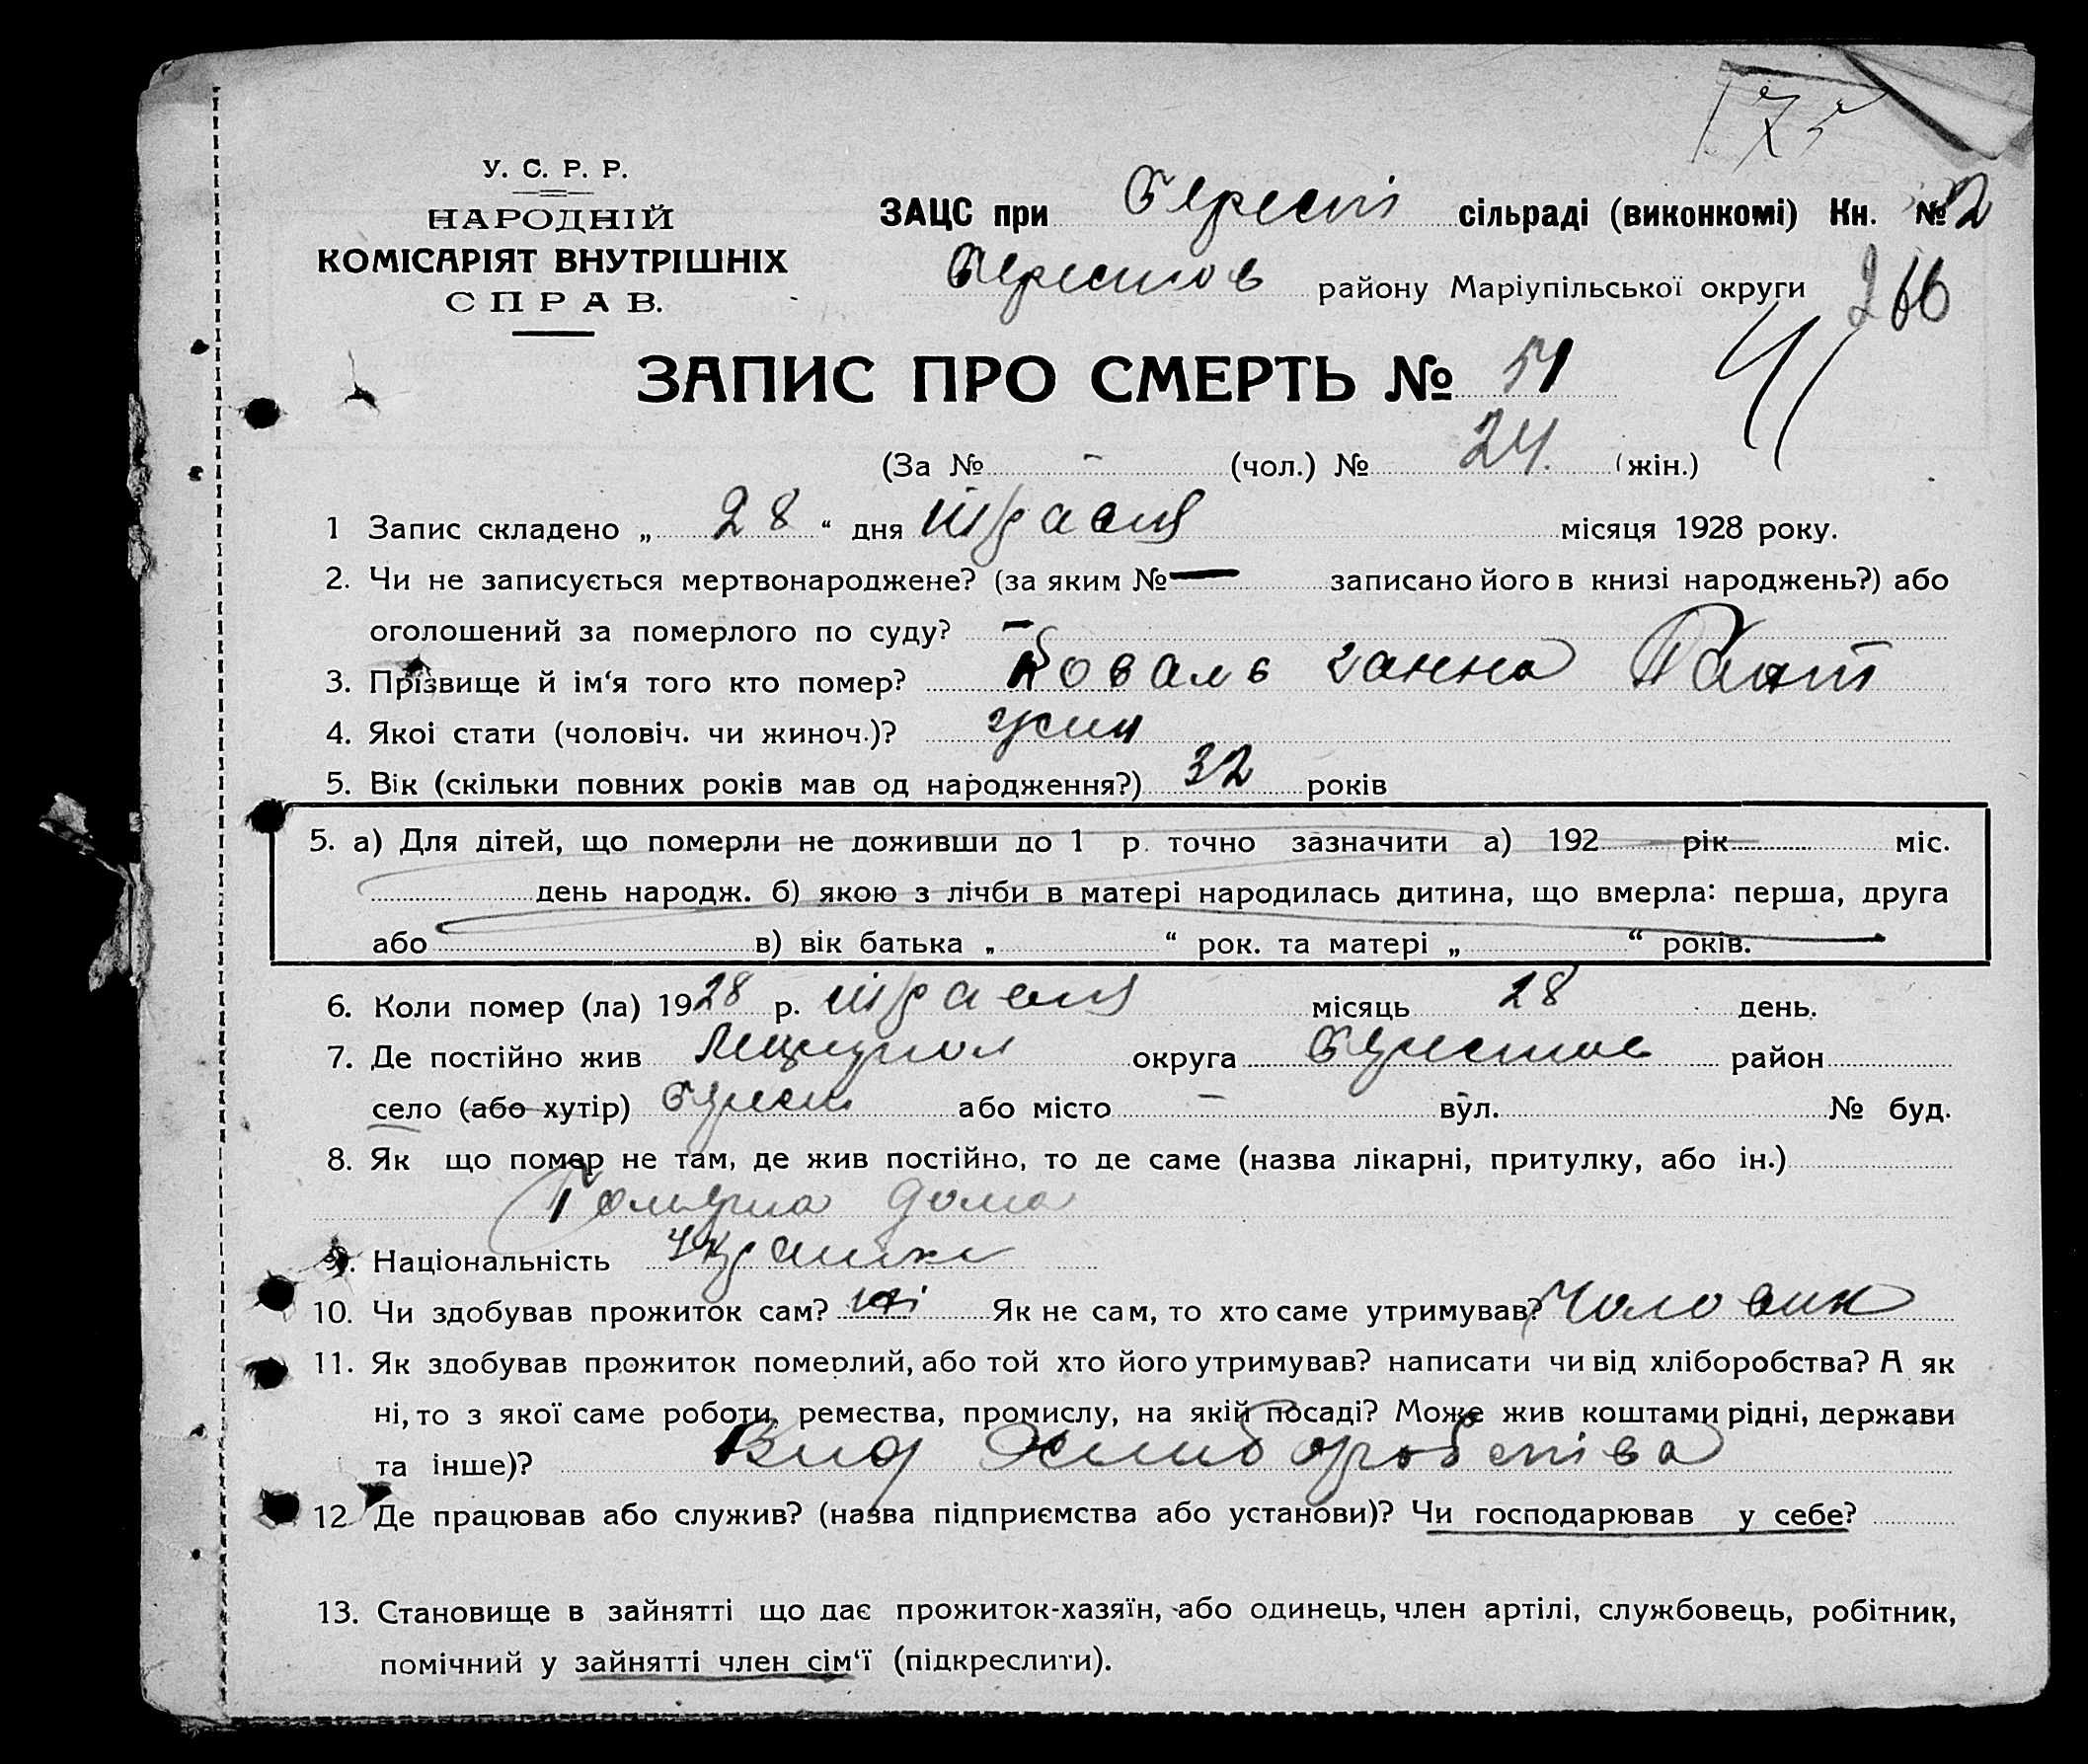 75
У. С. Р. Р.
НАРОДНІЙ
КОМІСАРІЯТ ВНУТРІШНІХ
СПРАВ.
ЗАЦС при Берест сільраді (виконкомі) Кн. № 2
Берестов району Маріупільської округи
266
ЗАПИС ПРО СМЕРТЬ № 51
(За № - (чол.) № 24. (жін.)
1 Запис складено „ 28 “ дня травня місяця 1928 року.
2. Чи не записується мертвонароджене? (за яким № — записано його в книзі народжень?) або
оголошений за померлого по суду? —
3. Прізвище й ім‘я того кто помер? Коваль Ганна
4. Якої стати (чоловіч. чи жиноч.)? жин
5. Вік (скільки повних років мав од народження?) 32 років
5. а) Для дітей, що померли не доживши до 1 р. точно зазначити а) 192 рік міс.
день народж. б) якою з лічби в матері народилась дитина, що вмерла: перша, друга
або в) вік батька „ “ рок. та матері „ “ років.
6. Коли помер (ла) 1928 р. травня місяць 28 день.
7. Де постійно жив округа Берестов район
село (або хутір) Берест або місто — вул. № буд.
8. Як що помер не там, де жив постійно, то де саме (назва лікарні, притулку, або ін.)
Померла дома
9. Національність Украинк
10. Чи здобував прожиток сам? ні Як не сам, то хто саме утримував? Чоловик
11. Як здобував прожиток померлий, або той хто його утримував? написати чи від хліборобства? А як
ні, то з якої саме роботи, ремества, промислу, на якій посаді? Може жив коштами рідні, держави
та інше)? Вид Хлиборобства
12. Де працював або служив? (назва підприємства або установи)? Чи господарював у себе?
13. Становище в зайнятті що дає прожиток-хазяїн, або одинець, член артілі, службовець, робітник,
помічний у зайнятті член сім‘ї (підкреслити).